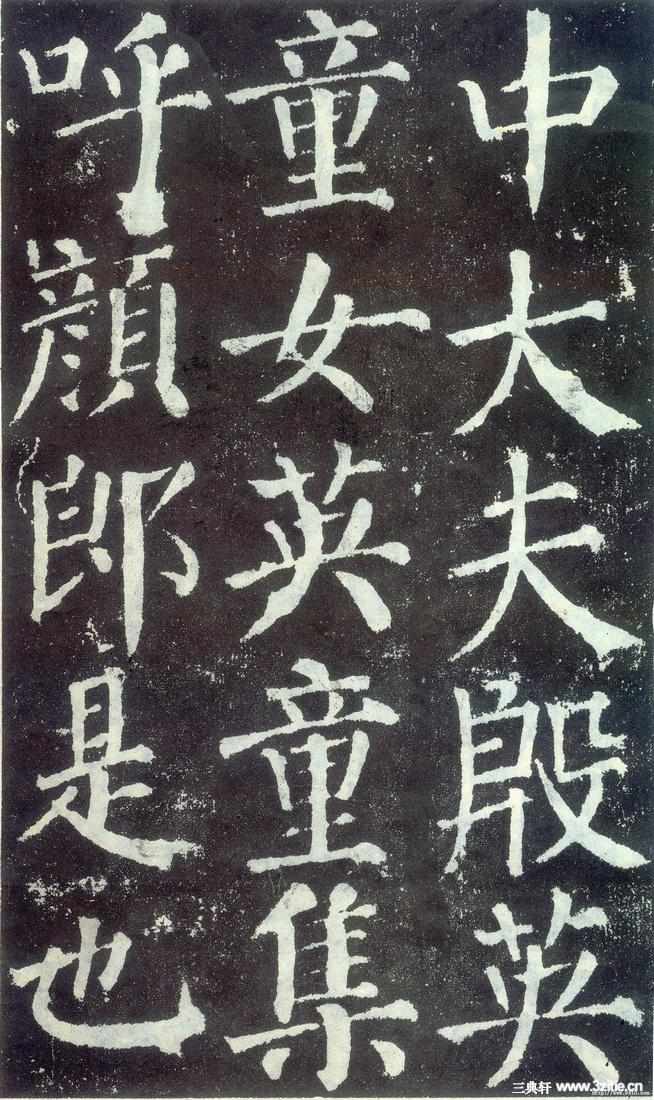 中大夫殷英
童女英童集
呼顔郎是也
三典轩 www.3ztie.cn